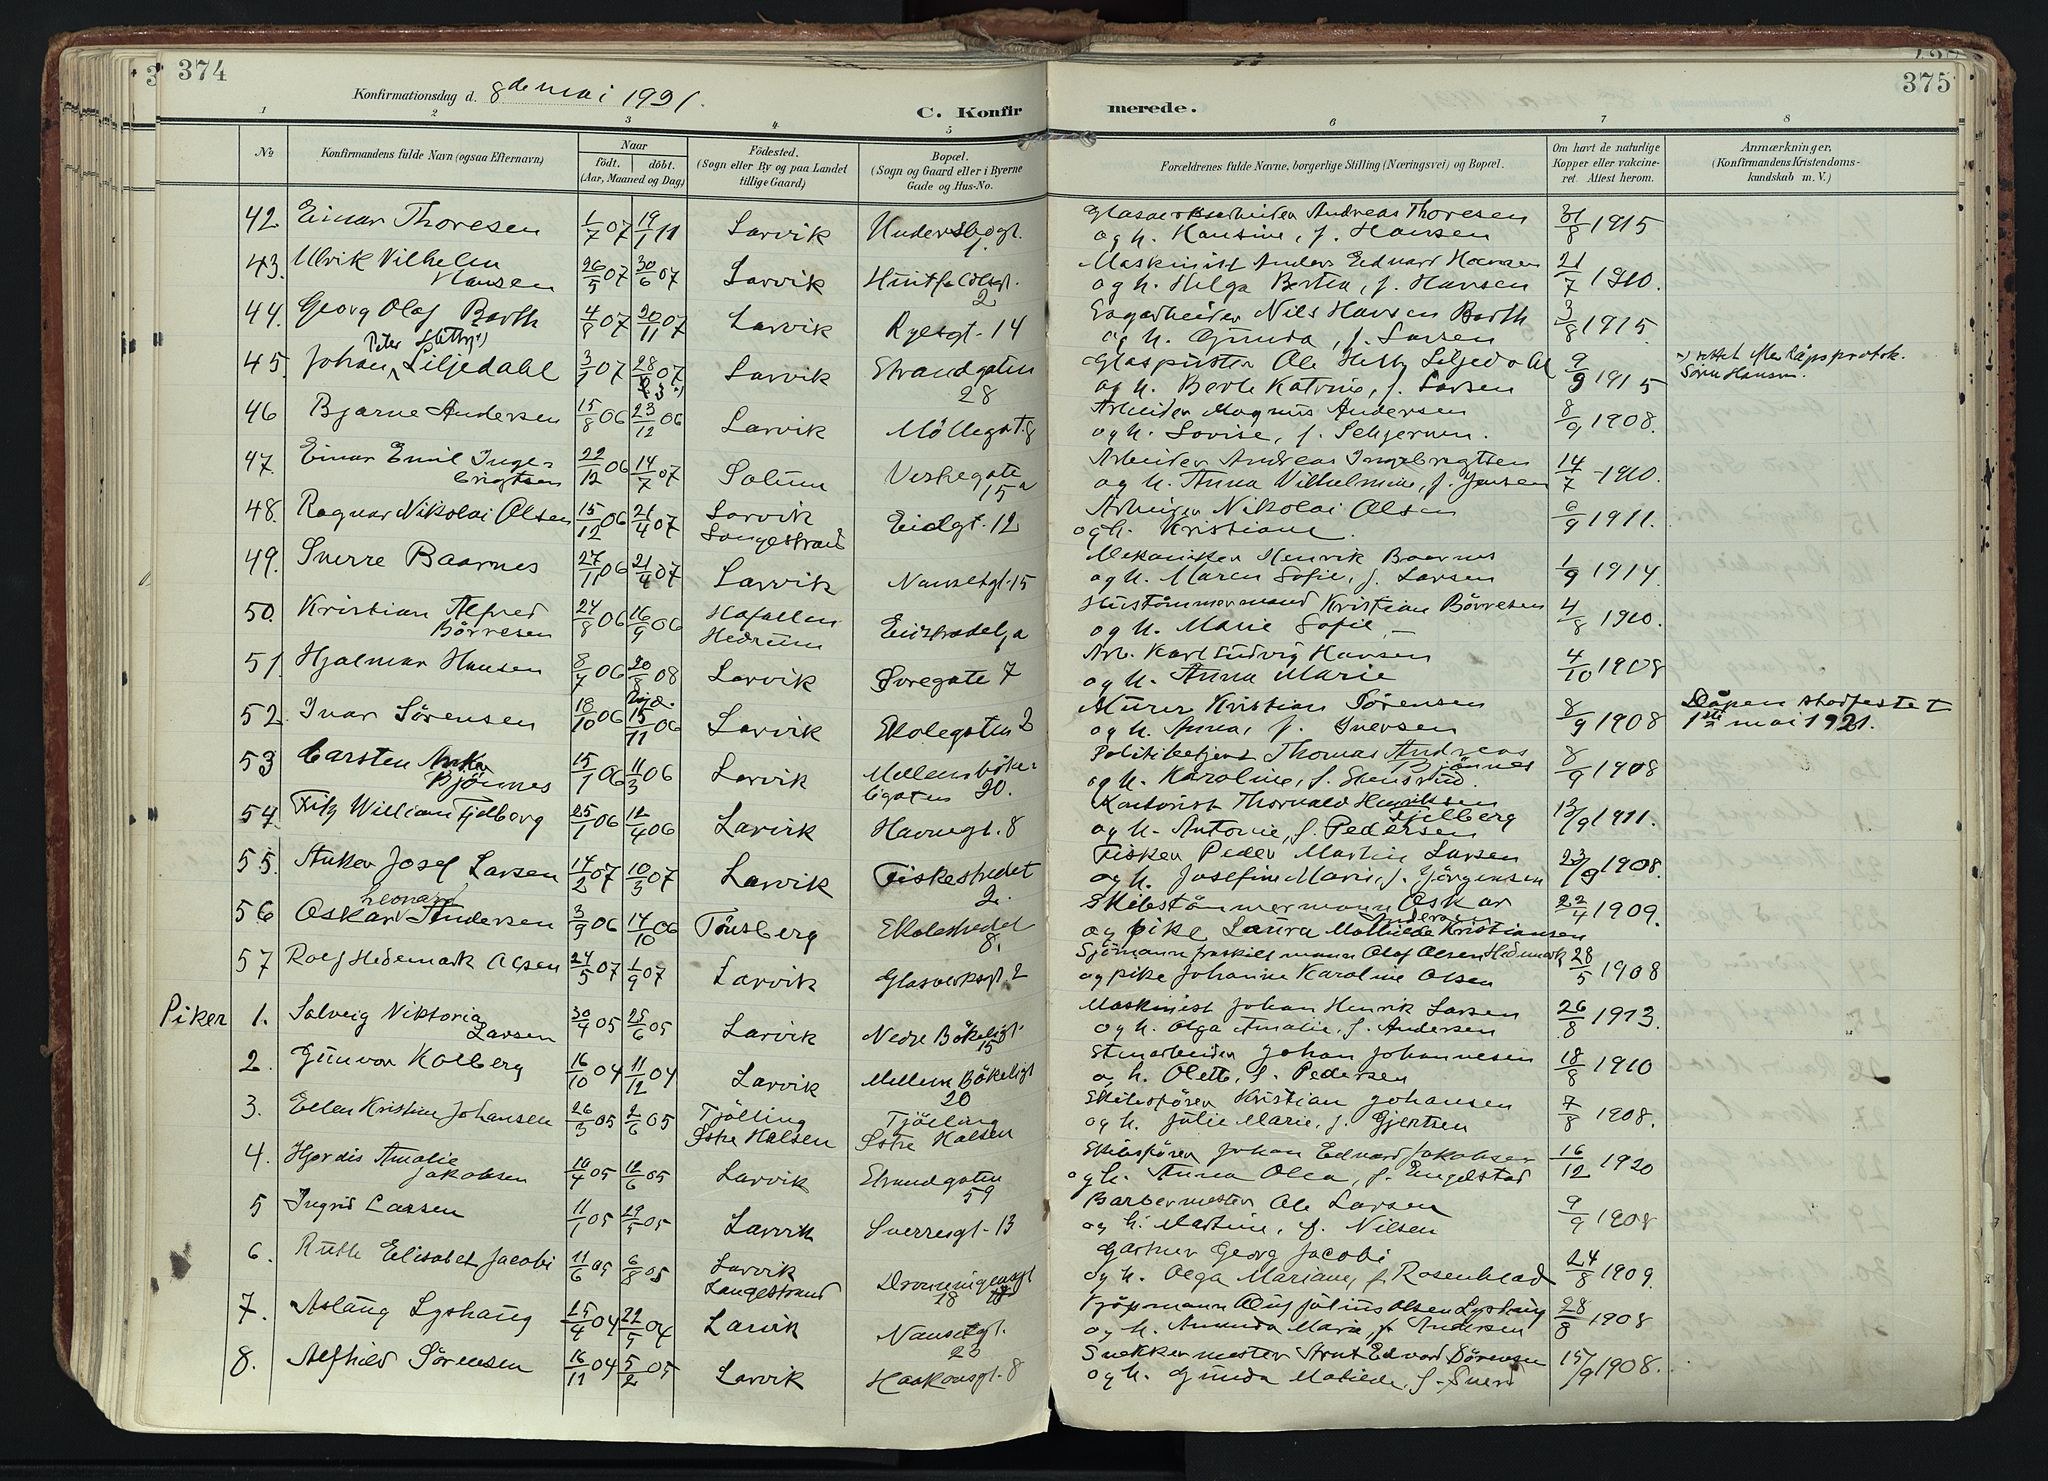 374
Konfirmationsdag d. 8de mai 1921.
C. Konfirmerede.
375
1 2 3 4 5 6 7 8
No
Konfirmandens fulde Navn (ogsaa Efternavn)
Naar
födt. döbt.
(Aar, Maaned og Dag)
Födested.
(Sogn eller By og paa Landet
tillige Gaard)
Bopæl.
(Sogn og Gaard eller i Byerne
Gade og Hus-No.
Forældrenes fulde Navne, borgerlige Stilling (Næringsvei) og Bopæl.
Om havt de naturlige
Kopper eller vakcine-
ret. Attest herom.
Anmærkninger.
(Konfirmandens Kristendoms-
kundskab m. V.)
42 Einar Thoresen 1/7 07 19/1 11 Larvik Glasverksarbeider Andreas Thoresen 31/8 1915
og h. Hansine, f. Hansen
43. Ulrik Vilhelm 26/5 07 30/6 07 Larvik Huitfeldtsgt. Maskinist Anders Edvard Hansen 21/7 1910.
Hansen 2 og h. Helga Bertea, f. Hansen
44. Georg Olaf Barth 4/8 07 20/11 07 Larvik Ryesgt. 14 Nils Hansen Barth 3/8 1915.
og h. Gunda, f. Larsen
45. Johan Peter Liljedahl 3/1 07 28/ 07 Larvik Strandgaten Glaspuster Ole Liljedahl 9/9 1915 rettet efter dåpsprotok.
28 og h. Berte Katrine, f. Larsen
46 Bjarne Andersen 15/8 06 23/12 06 Larvik Möllegt. 8 Arbeider Magnus Andersen 8/9 1908.
og h. Lovise, f.
47. Einar Emil Inge- 22/12 06 14/7 07 Solum Arbeider Andreas Ingebrigtsen 14/7 1910.
brigtsen 15 a og h. Anna Vilhelmine, f. Jensen
48. Ragnar Nikolai Olsen 15/12 06 21/4 07 Larvik Eidgt. 12 Arbeider Nikolai Olsen 6/9 1911.
Langestrand og h. Kristiane.
49. Sverre Baarnes 27/11 06 21/4 07 Larvik Nansetgt. 15 Mekaniker Henrik Baarnes 1/9 1914.
og h. Maren Sofie, f. Larsen
50. Kristian Alfred 24/8 06 16/9 06 Hedrum Hustömmermand Kristian Börresen 4/8 1910.
Börresen og h. Marie Sofie
51. Hjalmar Hansen 8/7 06 20/8 08 Larvik Øvregate 7 Arb. Karl Ludvig Hansen 4/10 1908
og h. Anna Marie
52. Ivar Sörensen 18/10 06 15/11 06 Larvik Skolegaten 2 Murer Kristian Sörensen 8/9 1908 Dåpen stadfestet
og h. Anna, f. Iversen 1ste mai 1921.
53 Carsten Anker 15/1 06 11/3 06 Larvik Mellemböke- Politibetjent Thomas Andreas Bjönnes 8/9 1908
Bjönnes ligaten 20. og h. Karoline, f. Stensrud.
54 Fritz William Fjelberg 25/1 06 12/4 06 Larvik Havnegt. 8 Kontorist Thorvald Henriksen Fjelberg 13/9 1911.
og h. Antonie, f. Pedersen
55. Anker Josef Larsen 14/2 07 10/3 07 Larvik Fiskestredet Fisker Peder Martin Larsen 23/9 1908.
2. og h. Josefine Marie, f. Jörgensen
56 Oskar Leonard Andersen 3/9 06 14/10 06 Tönsberg Skolestredet Skibstömmermann Oskar Andersen 22/4 1909.
8. og pike Laura Mathilde Kristiansen
57 Rolf Hedemark Olsen 24/5 07 1/9 07 Larvik Glasverksgt. 2 Sjömann fraskilt mann Olaf Olsen Hedemark 28/5 1908
og pike Johanne Karoline Olsen
Piker 1. Solveig Viktoria 30/4 05 25/6 05 Larvik Nedre Bökeligt. Maskinist Johan Henrik Larsen 26/8 1913.
Larsen 15 og h. Olga Amalie, f. Andersen
2. Gunvor Kolberg 16/10 04 11/12 04 Larvik Mellem Bökeligt Stenarbeider Johan Johannesen 18/8 1910
20 og h. Olette, f. Pedersen
3. Ellen Kristine Johansen 26/3 05 2/6 05 Tjölling Tjölling Skibsförer Kristian Johansen 7/8 1908.
Östre Halsen Östre Halsen og h. Julie Marie, f. Gjertsen
4. Hjördis Amalie 10/4 05 12/6 05 Larvik Strandgaten Skibsförer Johan Edvard Jakobsen 16/12 1920
Jakobsen 59 og h. Anna Olea, f. Engelstad
5 Ingrid Larsen 11/1 05 29/5 05 Larvik Sverresgt. 13 Barbermester Ole Larsen 9/9 1908
og h. Martine, f. Nilsen
6. Ruth Elisabet Jacobi 11/6 05 6/8 05 Larvik Dronningensgt Gartner Georg Jacobi 24/8 1909.
Langestrand 18 og h. Olga Mariane, f. Rosenblad
7. Aslaug Lyshaug 25/4 04 22/5 04 Larvik Nansetgt. Kjöpmann Oluf Julius Olsen Lyshaug 28/8 1908
23 og h. Amanda Marie, f. Andersen
8. Alfhild Sörensen 16/11 04 5/2 05 Larvik Haakonsgt. 8 Snekkermester Arnt Edvard Sörensen 15/9 1908.
og h. Gunda Matilde, f.